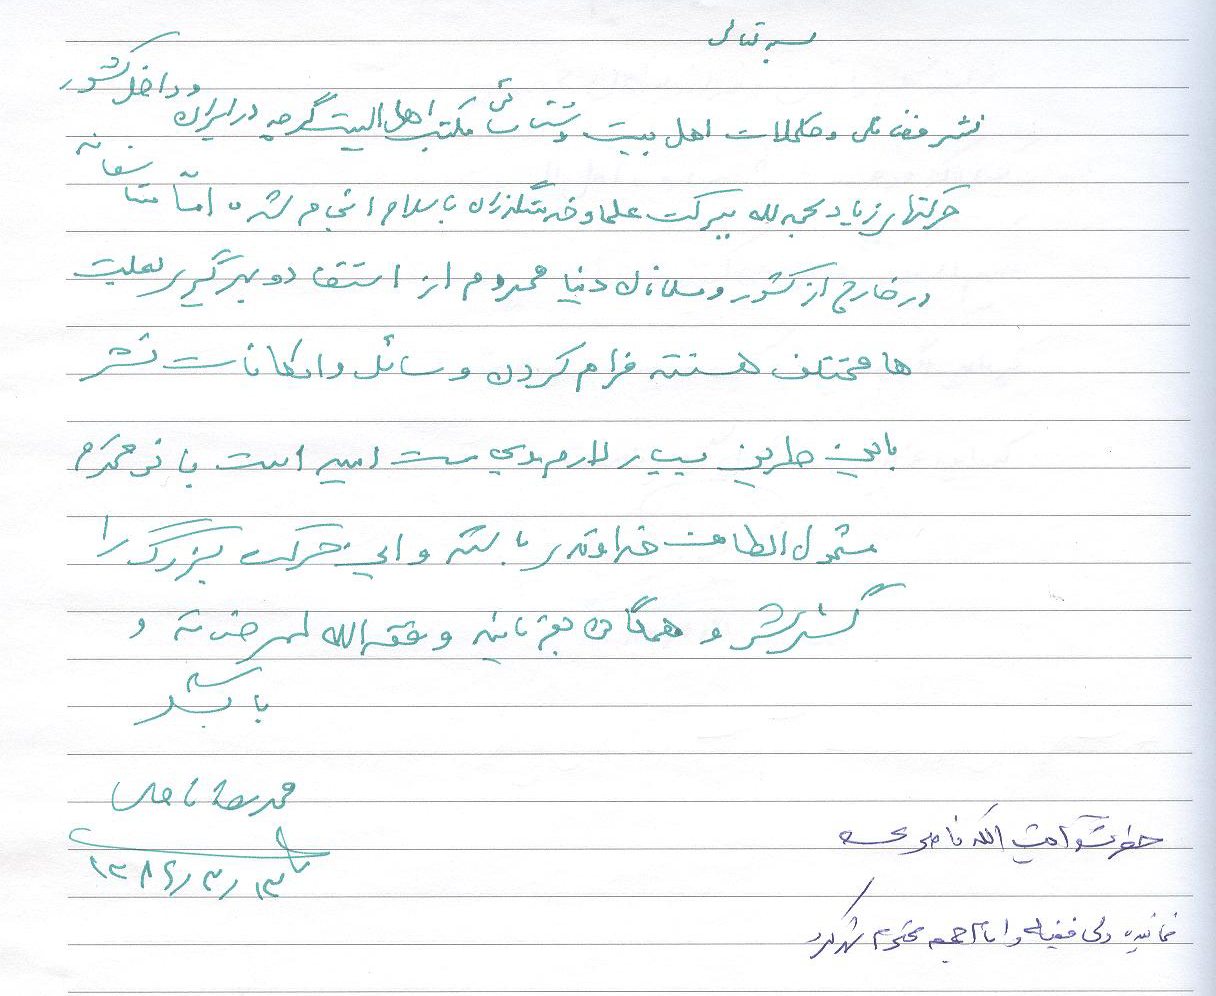 بسمه تعالی
نشر فضائل و کمالات اهل بیت و شناسائی مکتب اهل البیت گرچه در ایران و داخل کشور
حرکتهای زیاد بحمدلله ببرکت علما و خدمتگذران باسلام انجام شده اما متاسفانه
در خارج از کشور و مسلمانان دنیا محروم از استفاده و بهرگیری بعلت
ها مختلف هستند فراهم کردن وسائل و امکانات نشر
باین طریق بسیار لازم است امید است بانی محترم
مشمول الطاف خداوندی باشند و این حرکت بزرگ را
گسترش و همگانی بفرمایند وفقه الله لمرضاته و
باشد
محمدرضا ناصری
۱۳۸۶/۳/۱۳
حضرت آیت الله ناصری
نماینده ولی فقیه و امام جمعه محترم شهرکرد